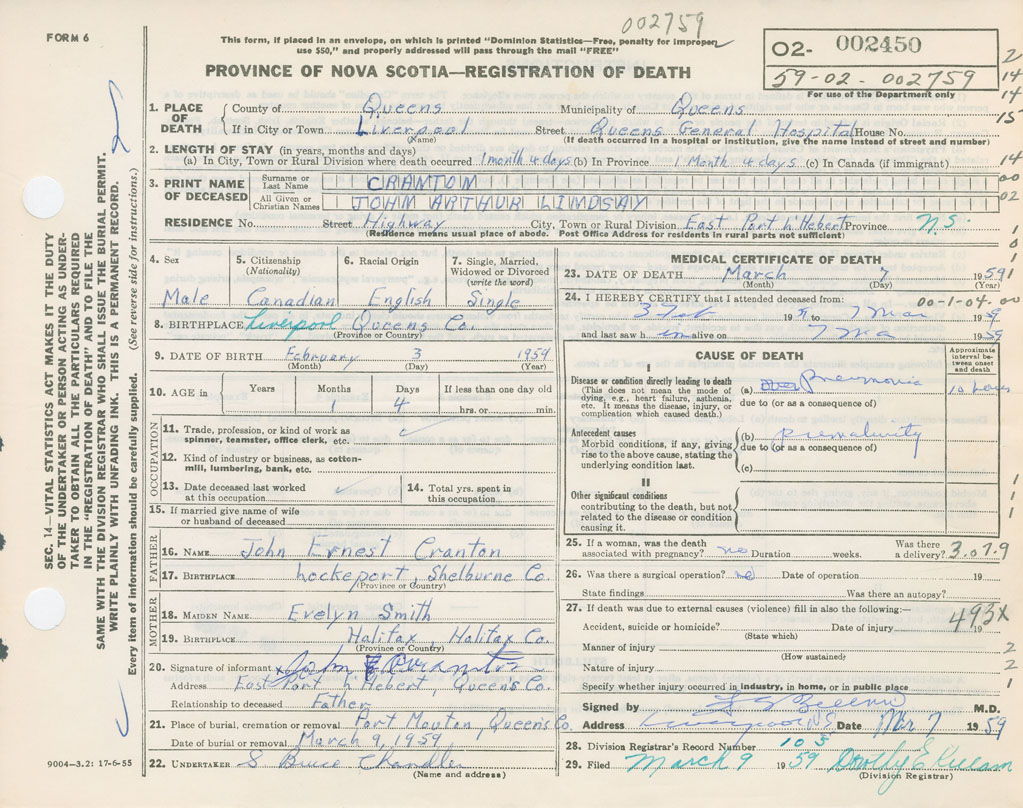 002759
FORM 6
This form, if placed in an envelope, on which is printed "Dominion Statistics—Free, penalty for improper
use $50," and properly addressed will pass through the mail "FREE"
02- 002450
59-02-002759
For use of the Department only
PROVINCE OF NOVA SCOTIA—REGISTRATION OF DEATH
2
14
14
15
14
00
02
1
0
1
SEC. 14—VITAL STATISTICS ACT MAKES IT THE DUTY
OF THE UNDERTAKER OR PERSON ACTING AS UNDER-
TAKER TO OBTAIN ALL THE PARTICULARS REQUIRED
IN THE "REGISTRATION OF DEATH" AND TO FILE THE
SAME WITH THE DIVISION REGISTRAR WHO SHALL ISSUE THE BURIAL PERMIT.
WRITE PLAINLY WITH UNFADING INK. THIS IS A PERMANENT RECORD.
Every item of information should be carefully supplied. (See reverse side for instructions.)
1. PLACE OF DEATH County of Queens Municipality of Queens
If in City or Town Liverpool Street Queens General Hospital House No.
(Name) (If death occurred in a hospital or institution, give the name instead of street and number)
2. LENGTH OF STAY (in years, months and days)
(a) In City, Town or Rural Division where death occurred 1 month 4 days (b) In Province 1 Month 4 days (c) In Canada (if immigrant)
3. PRINT NAME OF DECEASED Surname or Last Name CRANTON
All Given or Christian Names JOHN ARTHUR LINDSAY
RESIDENCE No. Street Highway City, Town or Rural Division East Port L'Hebert Province N.S.
(Residence means usual place of abode. Post Office Address for residents in rural parts not sufficient)
4. Sex 5. Citizenship (Nationality) 6. Racial Origin 7. Single, Married, Widowed or Divorced (write the word)
Male Canadian English Single
8. BIRTHPLACE Liverpool Queens Co.
(Province or Country)
9. DATE OF BIRTH February 3 1959
(Month) (Day) (Year)
10. AGE in Years Months Days If less than one day old
1 4 hrs. or min.
OCCUPATION
11. Trade, profession, or kind of work as
spinner, teamster, office clerk, etc.
12. Kind of industry or business, as cotten-
mill, lumbering, bank, etc.
13. Date deceased last worked
at this occupation
14. Total yrs. spent in
this occupation
15. If married give name of wife
or husband of deceased
FATHER
16. NAME John Ernest Cranton
17. BIRTHPLACE Lockeport, Shelburne Co.
(Province or Country)
MOTHER
18. MAIDEN NAME Evelyn Smith
19. BIRTHPLACE Halifax, Halifax Co.
(Province or Country)
20. Signature of informant John E Cranton
Address East Port L Hebert, Queen's Co.
Relationship to deceased Father
21. Place of burial, cremation or removal Port Mouton, Queen's Co.
Date of burial or removal March 9, 1959
22. UNDERTAKER S Bruce Chandler
(Name and address)
9004—3.2: 17-6-55
MEDICAL CERTIFICATE OF DEATH
23. DATE OF DEATH March 7 1959
(Month) (Day) (Year)
24. I HEREBY CERTIFY that I attended deceased from: 00-1-04.00
3 Feb 1959 to 7 Mar 1959
and last saw him alive on 7 Ma 1959
CAUSE OF DEATH
Approximate interval be-
tween onset and death
I
Disease or condition directly leading to death
(This does not mean the mode of
dying, e.g., heart failure, asthenia,
etc. It means the disease, injury, or
complication which caused death.)
(a) Pneumonia 10 hours
due to (or as a consequence of)
Antecedent causes
Morbid conditions, if any, giving
rise to the above cause, stating the
underlying condition last.
(b) prematurity
due to (or as a consequence of)
(c)
II
Other significant conditions
contributing to the death, but not
related to the disease or condition
causing it.
1
1
1
25. If a woman, was the death
associated with pregnancy? no Duration weeks. Was there
a delivery? 3.07.9
26. Was there a surgical operation? no Date of operation 19
State findings Was there an autopsy?
27. If death was due to external causes (violence) fill in also the following:—
Accident, suicide or homicide? Date of injury 19
493X
(State which)
Manner of injury 2
(How sustained)
Nature of injury 2
Specify whether injury occurred in industry, in home, or in public place 1
Signed by M.D.
Address Liverpool N.S. Date Mar 7 1959
28. Division Registrar's Record Number 105
29. Filed March 9 1959 Dorothy E
(Division Registrar)